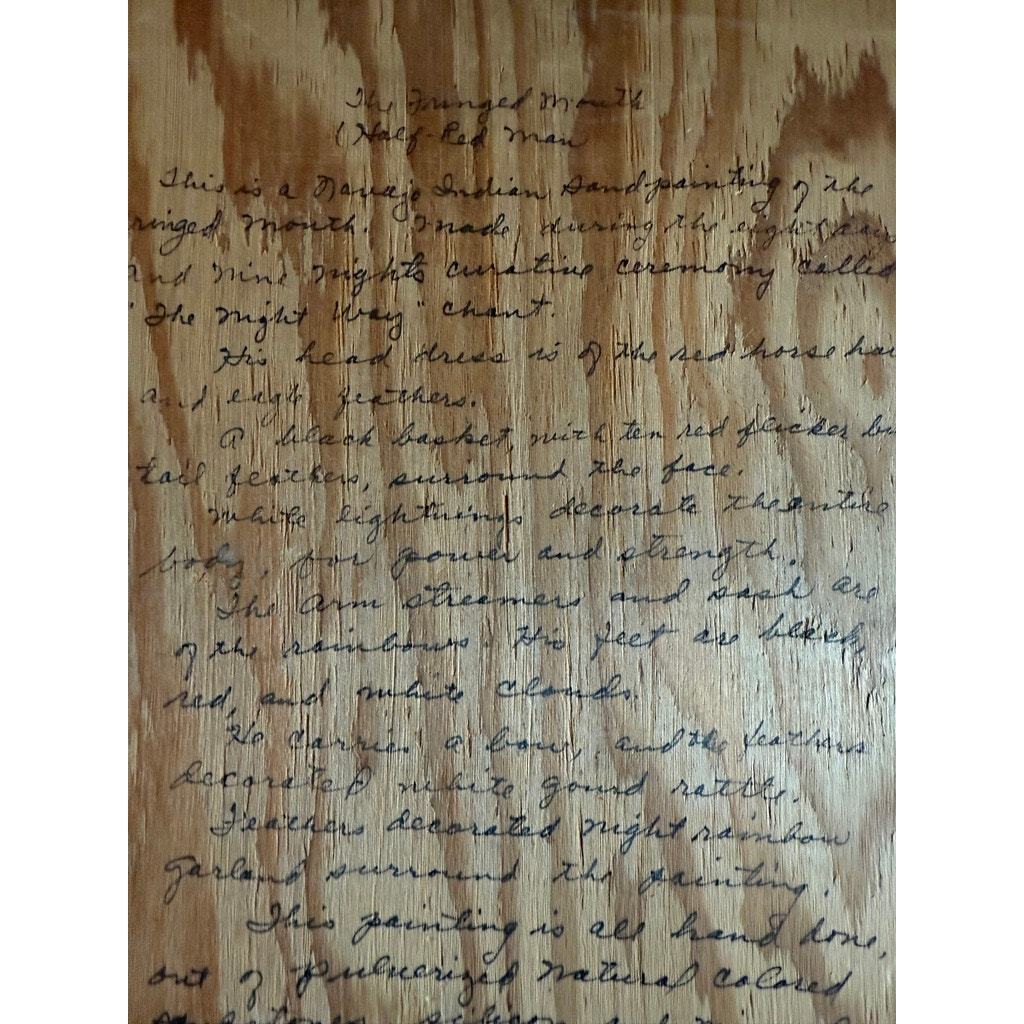 The Fringed Mouth
(Half-Red Man
This is a Navajo Indian Sand-painting of the
ringed Mouth. Made, during the eight
and nine nights curative ceremony called
"The Night Way" chant.
His head dress is of the red horse hai
and eagle feathers.
A black basket, with ten red flicker
tail feathers, surround the face.
White lightnings decorate the entire
body, for power and strength.
The arm streamers and sash are
of the rainbows. His feet are black,
red, and white clouds.
He carries a bow, and the feathers
decorated white gourd rattle.
Feathers decorated night rainbow
garland surround the painting.
This painting is all hand done,
out of pulverized natural colored